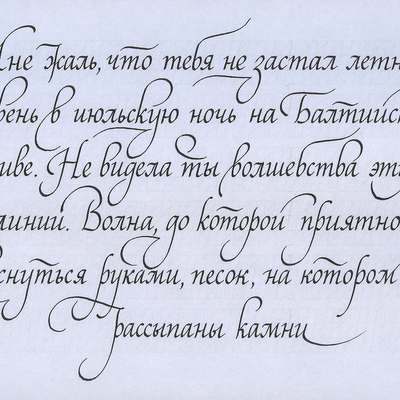 не жаль, что тебя не застал летн
ень в июльскую ночь на Балтийс
иве. Не видела ты волшебства эт
линий. Волна, до которой приятно
снуться руками, песок, на котором
рассыпаны камни